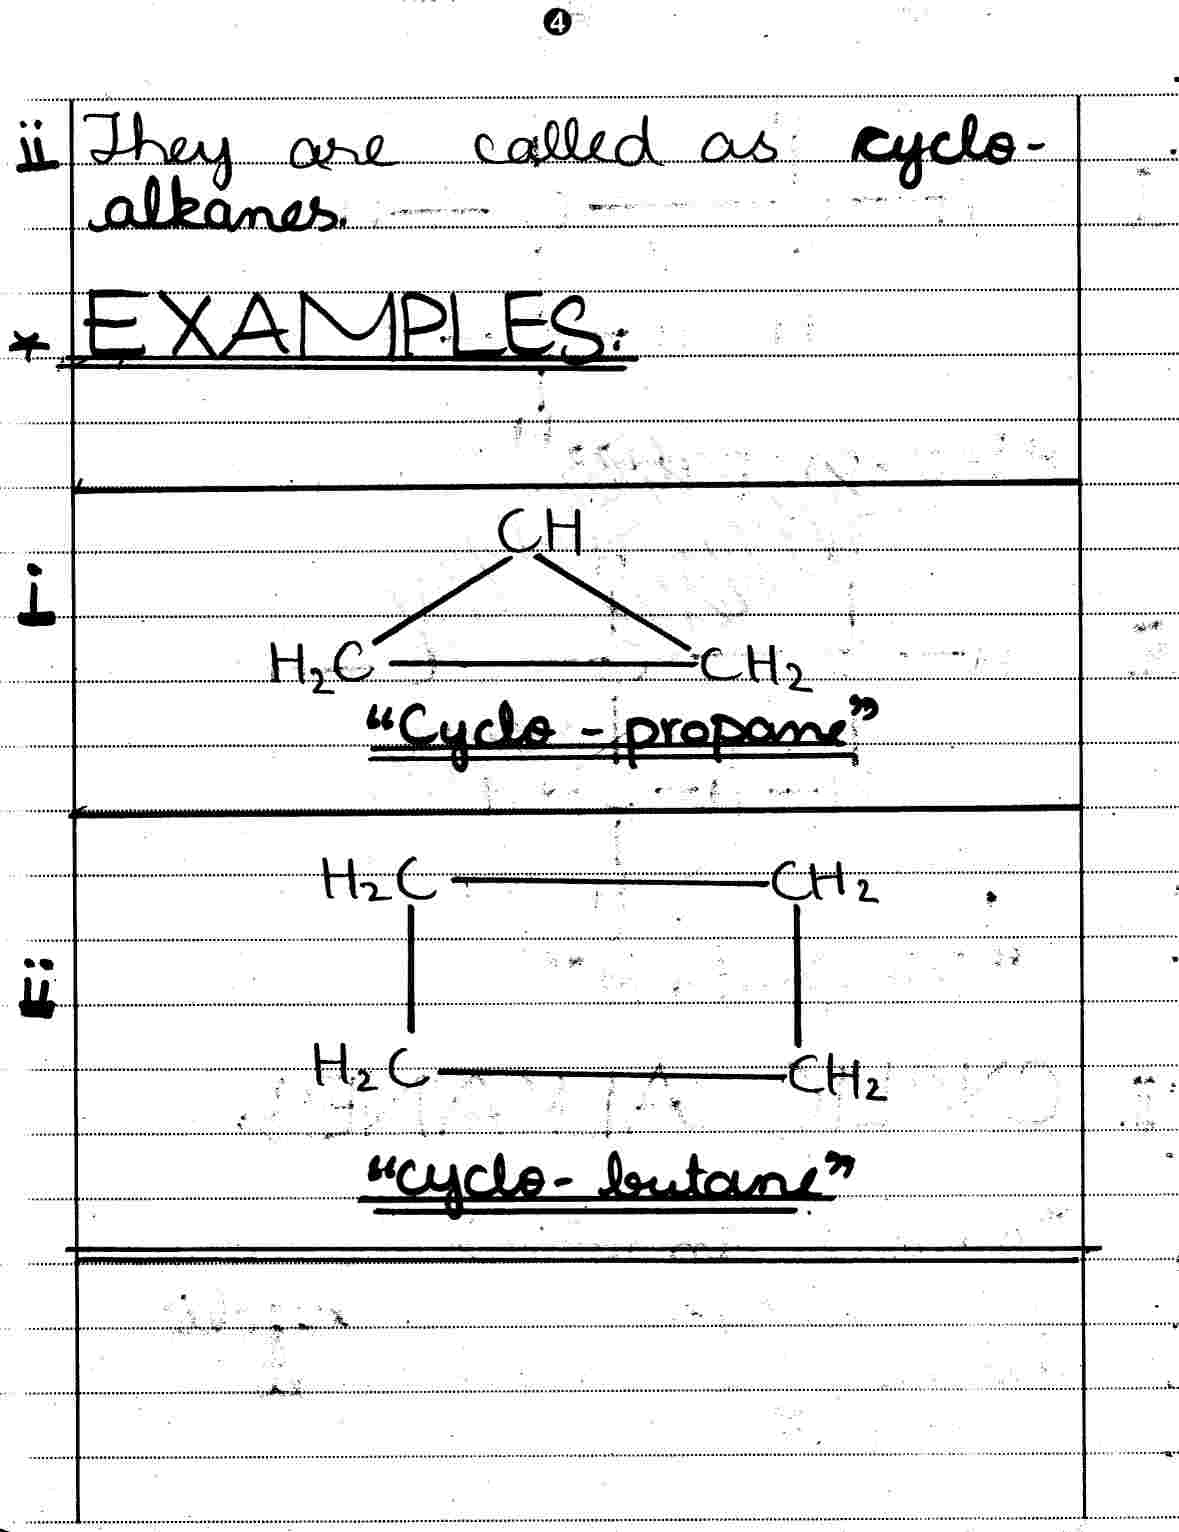 4
ii They are called as cyclo-
alkanes.
* EXAMPLES:
i
CH
H₂C CH₂
“Cyclo - propane”
ii
H₂C CH₂
H₂C CH₂
“cyclo- butane”